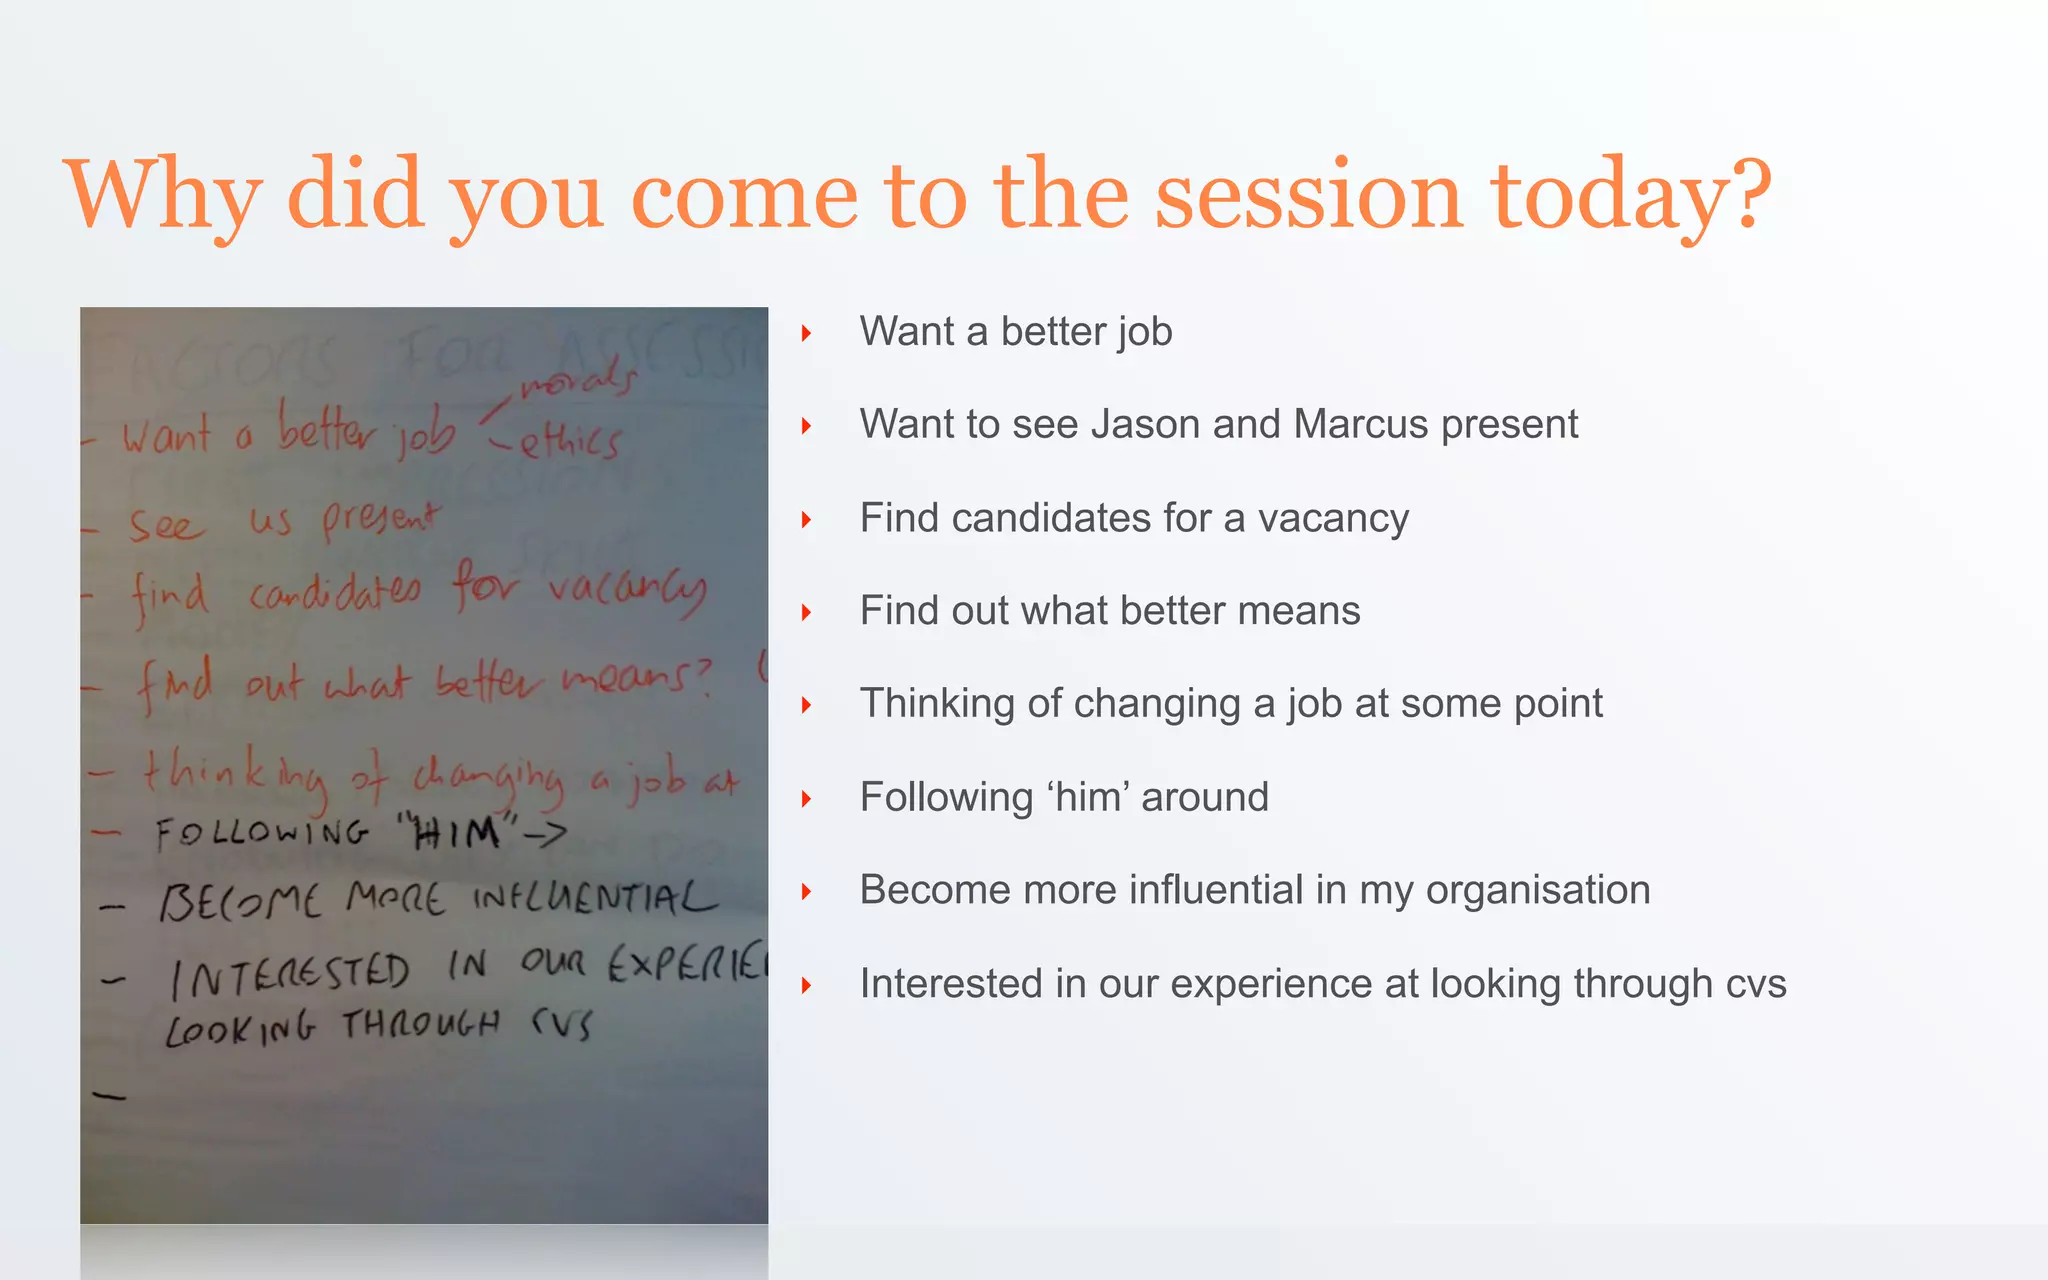 Why did you come to the session today?
FACTORS FOR ASSESSI
morals
- want a better job
- ethics
- see us present
- find candidates for vacancy
- find out what better means?
- thinking of changing a job at
- FOLLOWING "HIM" ->
- BECOME MORE INFLUENTIAL
- INTERESTED IN OUR EXPERIE
LOOKING THROUGH CVS
-
‣ Want a better job
‣ Want to see Jason and Marcus present
‣ Find candidates for a vacancy
‣ Find out what better means
‣ Thinking of changing a job at some point
‣ Following ‘him’ around
‣ Become more influential in my organisation
‣ Interested in our experience at looking through cvs